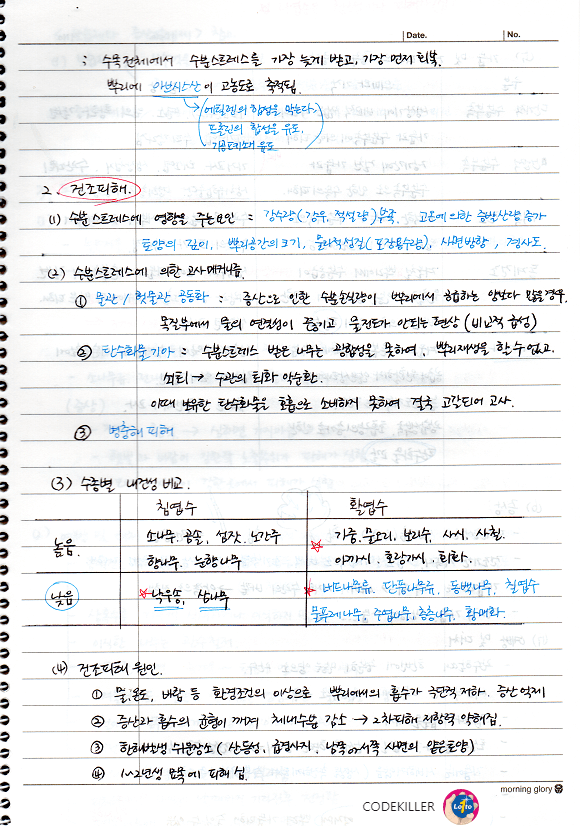 Date. No.
; 수목전체에서 수분스트레스를 가장 늦게 받고, 가장 먼저 회복.
뿌리에 아브시스산이 고농도로 축적됨.
에틸렌의 합성을 막는다.
프롤린의 합성을 유도.
기공폐쇄 유도
2. 건조피해.
(1) 수분스트레스에 영향을 주는요인 : 강수량(강우, 적설량)부족. 고온에 의한 증발산량 증가
토양의 깊이, 뿌리공간의 크기, 물리적성질(포장용수량), 사면방향, 경사도.
(2) 수분스트레스에 의한 고사메커니즘.
① 물관/헛물관 공동화 : 증산으로 인한 수분손실량이 뿌리에서 흡수하는 양보다 많을경우.
목질부에서 물의 연결성이 끊기고 물전도가 안되는 현상 (비교적 급성)
② 탄수화물기아 : 수분스트레스 받은 나무는 광합성을 못하여, 뿌리재생을 할 수 없고.
쇠퇴 → 수관의 퇴화 악순환.
이때 보유한 탄수화물을 호흡으로 소비하게 못하여 결국 고갈되어 고사.
③ 병충해 피해
(3) 수종별 내건성 비교.
침엽수 활엽수
높음. 소나무. 곰솔, 섬잣. 노간주 가중. 물오리. 보리수. 사시. 사철.
향나무. 눈향나무 아까시. 호랑가시. 회화.
낮음 낙우송, 삼나무 버드나무류, 단풍나무류, 동백나무, 칠엽수
물푸레나무, 주엽나무, 층층나무, 황매화.
(4) 건조피해 원인.
① 물, 온도, 바람 등 환경조건의 이상으로 뿌리에서의 흡수가 극단적 저하. 증산 억제
② 증산과 흡수의 균형이 깨져 체내수분 감소 → 2차피해 저항력 약해짐.
③ 한해발생 쉬운장소 (산능성, 급경사지, 남쪽or서쪽 사면의 얕은토양)
④ 1~2년생 묘목에 피해 심.
morning glory
CODEKILLER